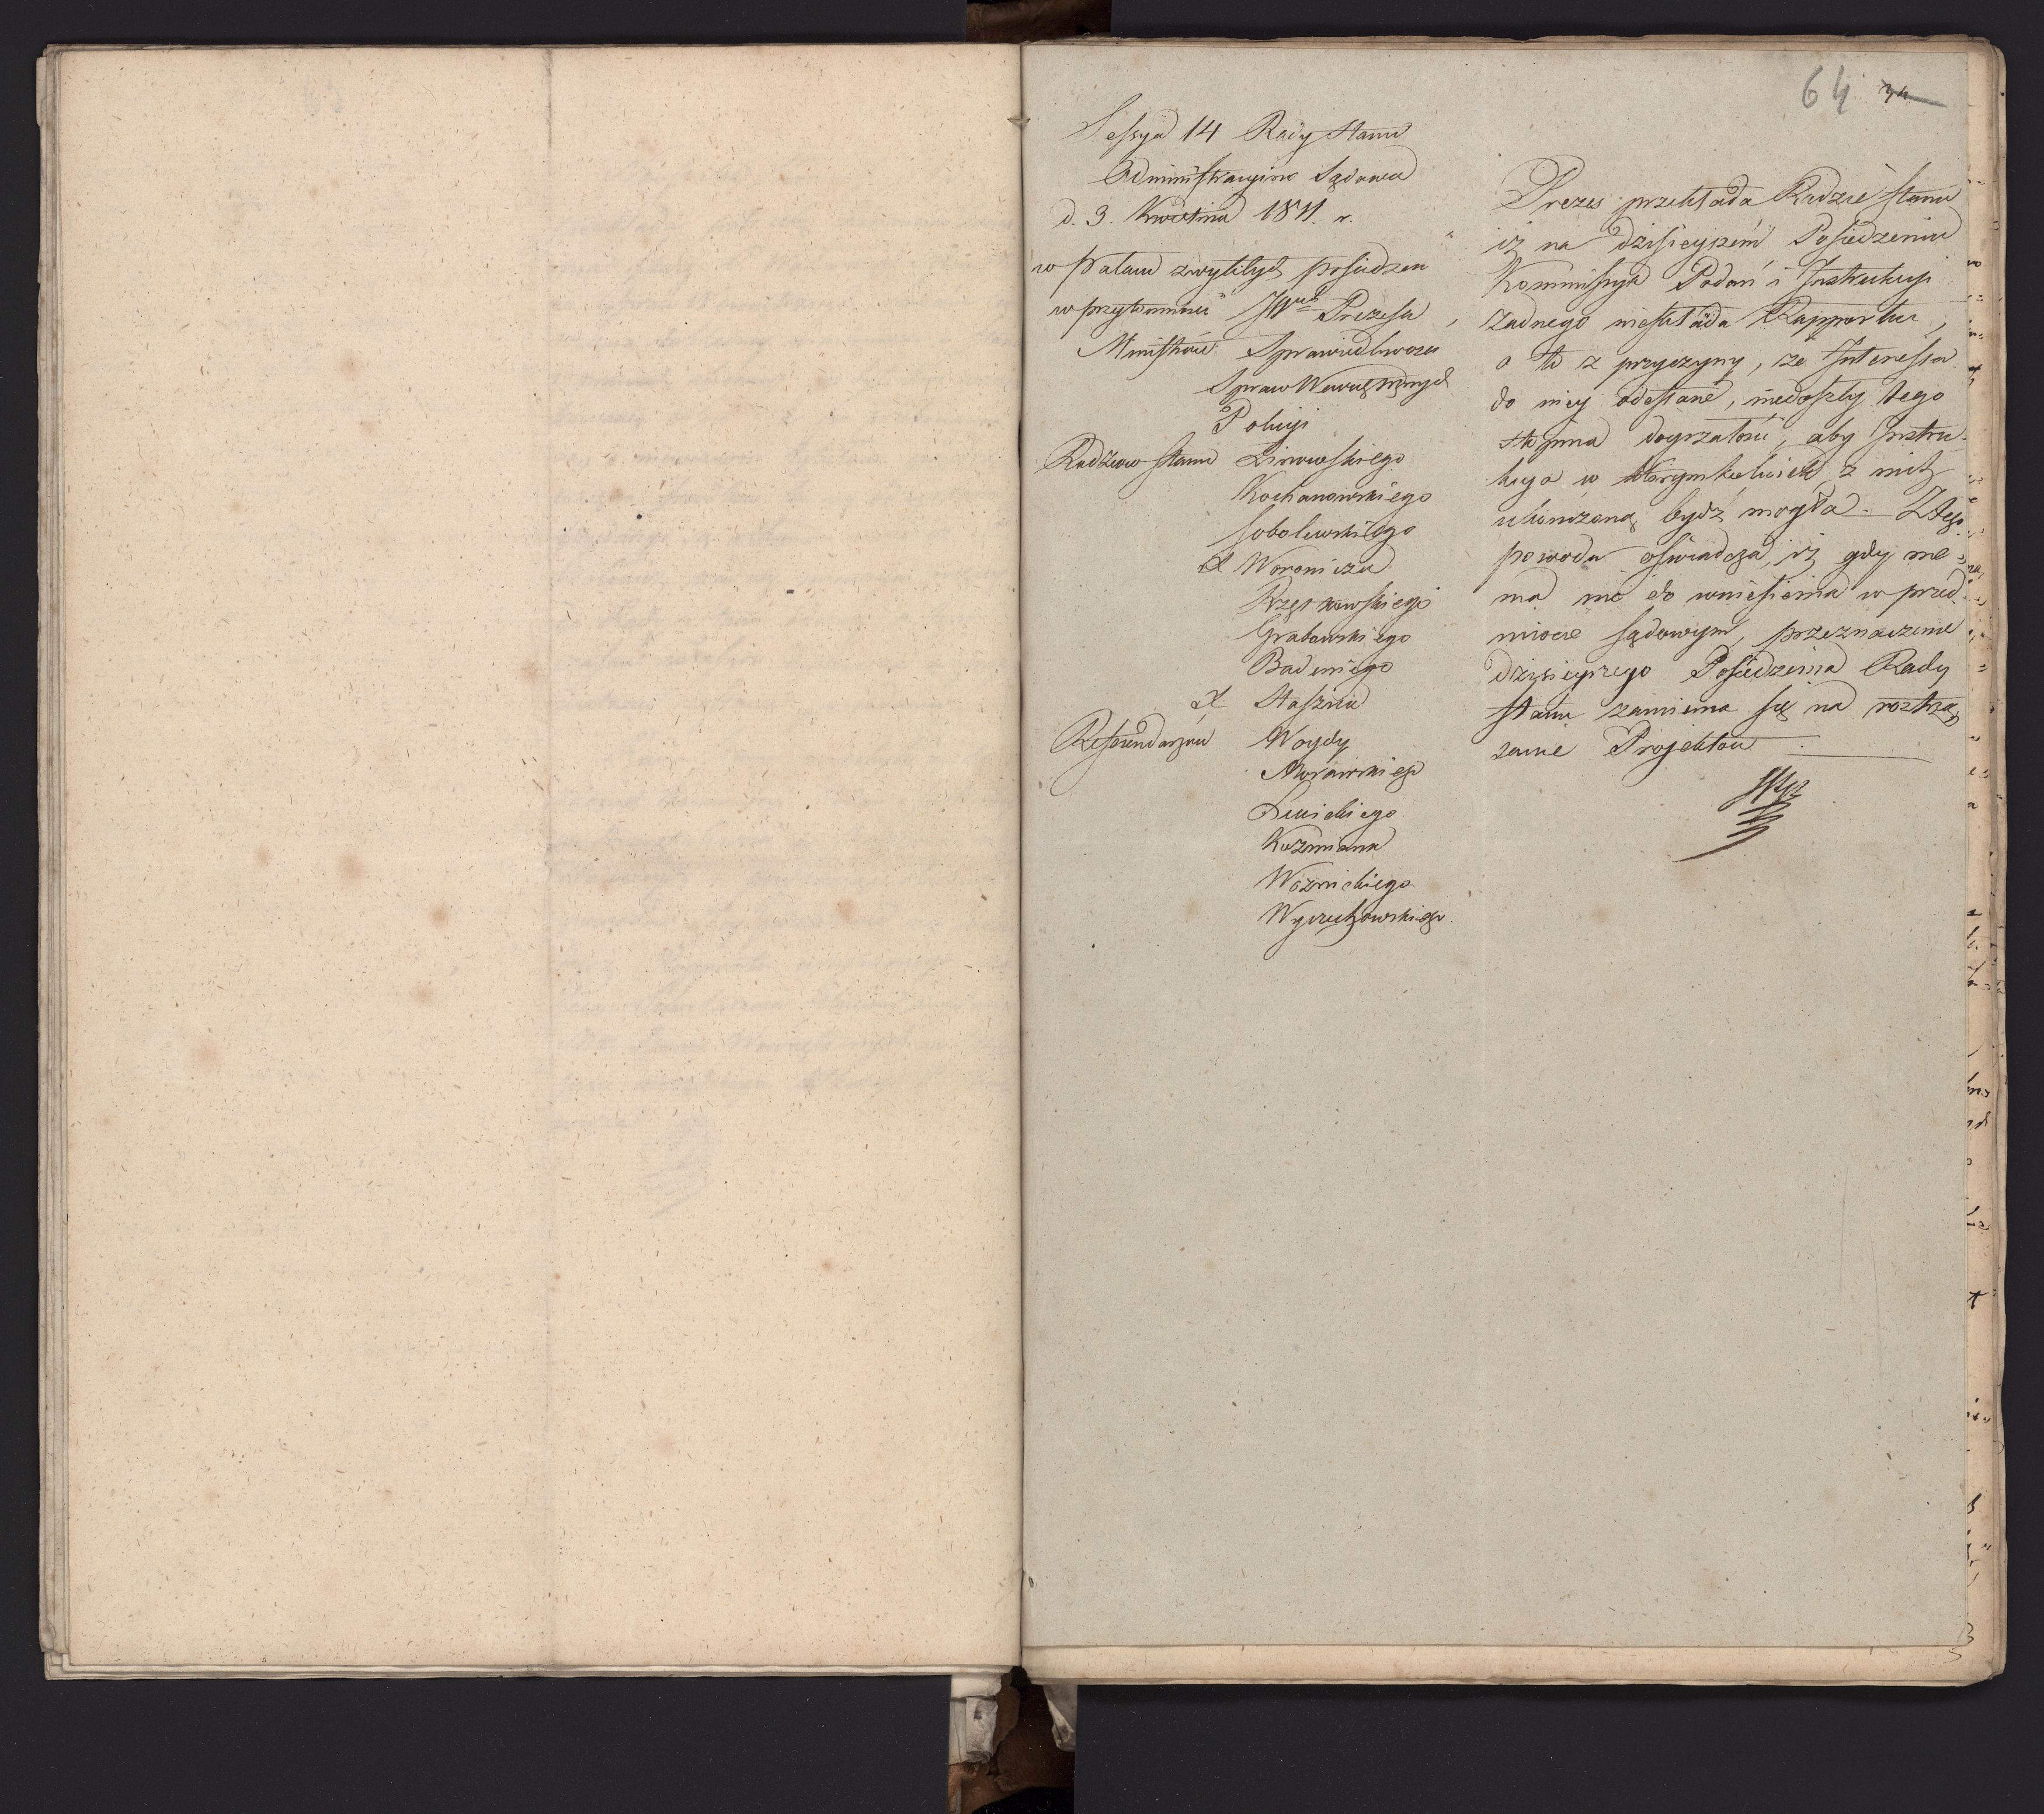 64 34
Sessya 14 Rady Stanu
Administracyino Sądowa
d. 3. Kwietnia 1811. r.
w Pałacu zwykłych posiedzen
w przytomności JW Prezesa
Ministrów Sprawiedliwości
Spraw Wewnętrznych
Policyi
Radzców Stanu Linowskiego
Kochanowskiego
Sobolewskiego
X Woronicza
Grabowskiego
Badeniego
X Staszica
Referendarzów Woydy
Morawskiego
Lewickiego
Koźmiana
Woznickiego
Wyczechowskiego.
Prezes przekłada Radzie Stanu
iż na dzisieyszém Posiedzeniu
Kommissya Podań i Instrukcyi
żadnego nieskłada Rapportu,
a to z przyczyny, że Interessa
do niey odesłane, niedoszły tego
stopnia doyrzałości, aby Instru-
kcya w którymkolwiek z nich
ukończoną bydź mogła. Z tego
powodu oświadcza, iż gdy nie
ma nic do wniesienia w przed-
miocie sądowym, przeznaczenie
dzisieyszego Posiedzenia Rady
Stanu zamienia się na roztrzą-
sanie Projektów